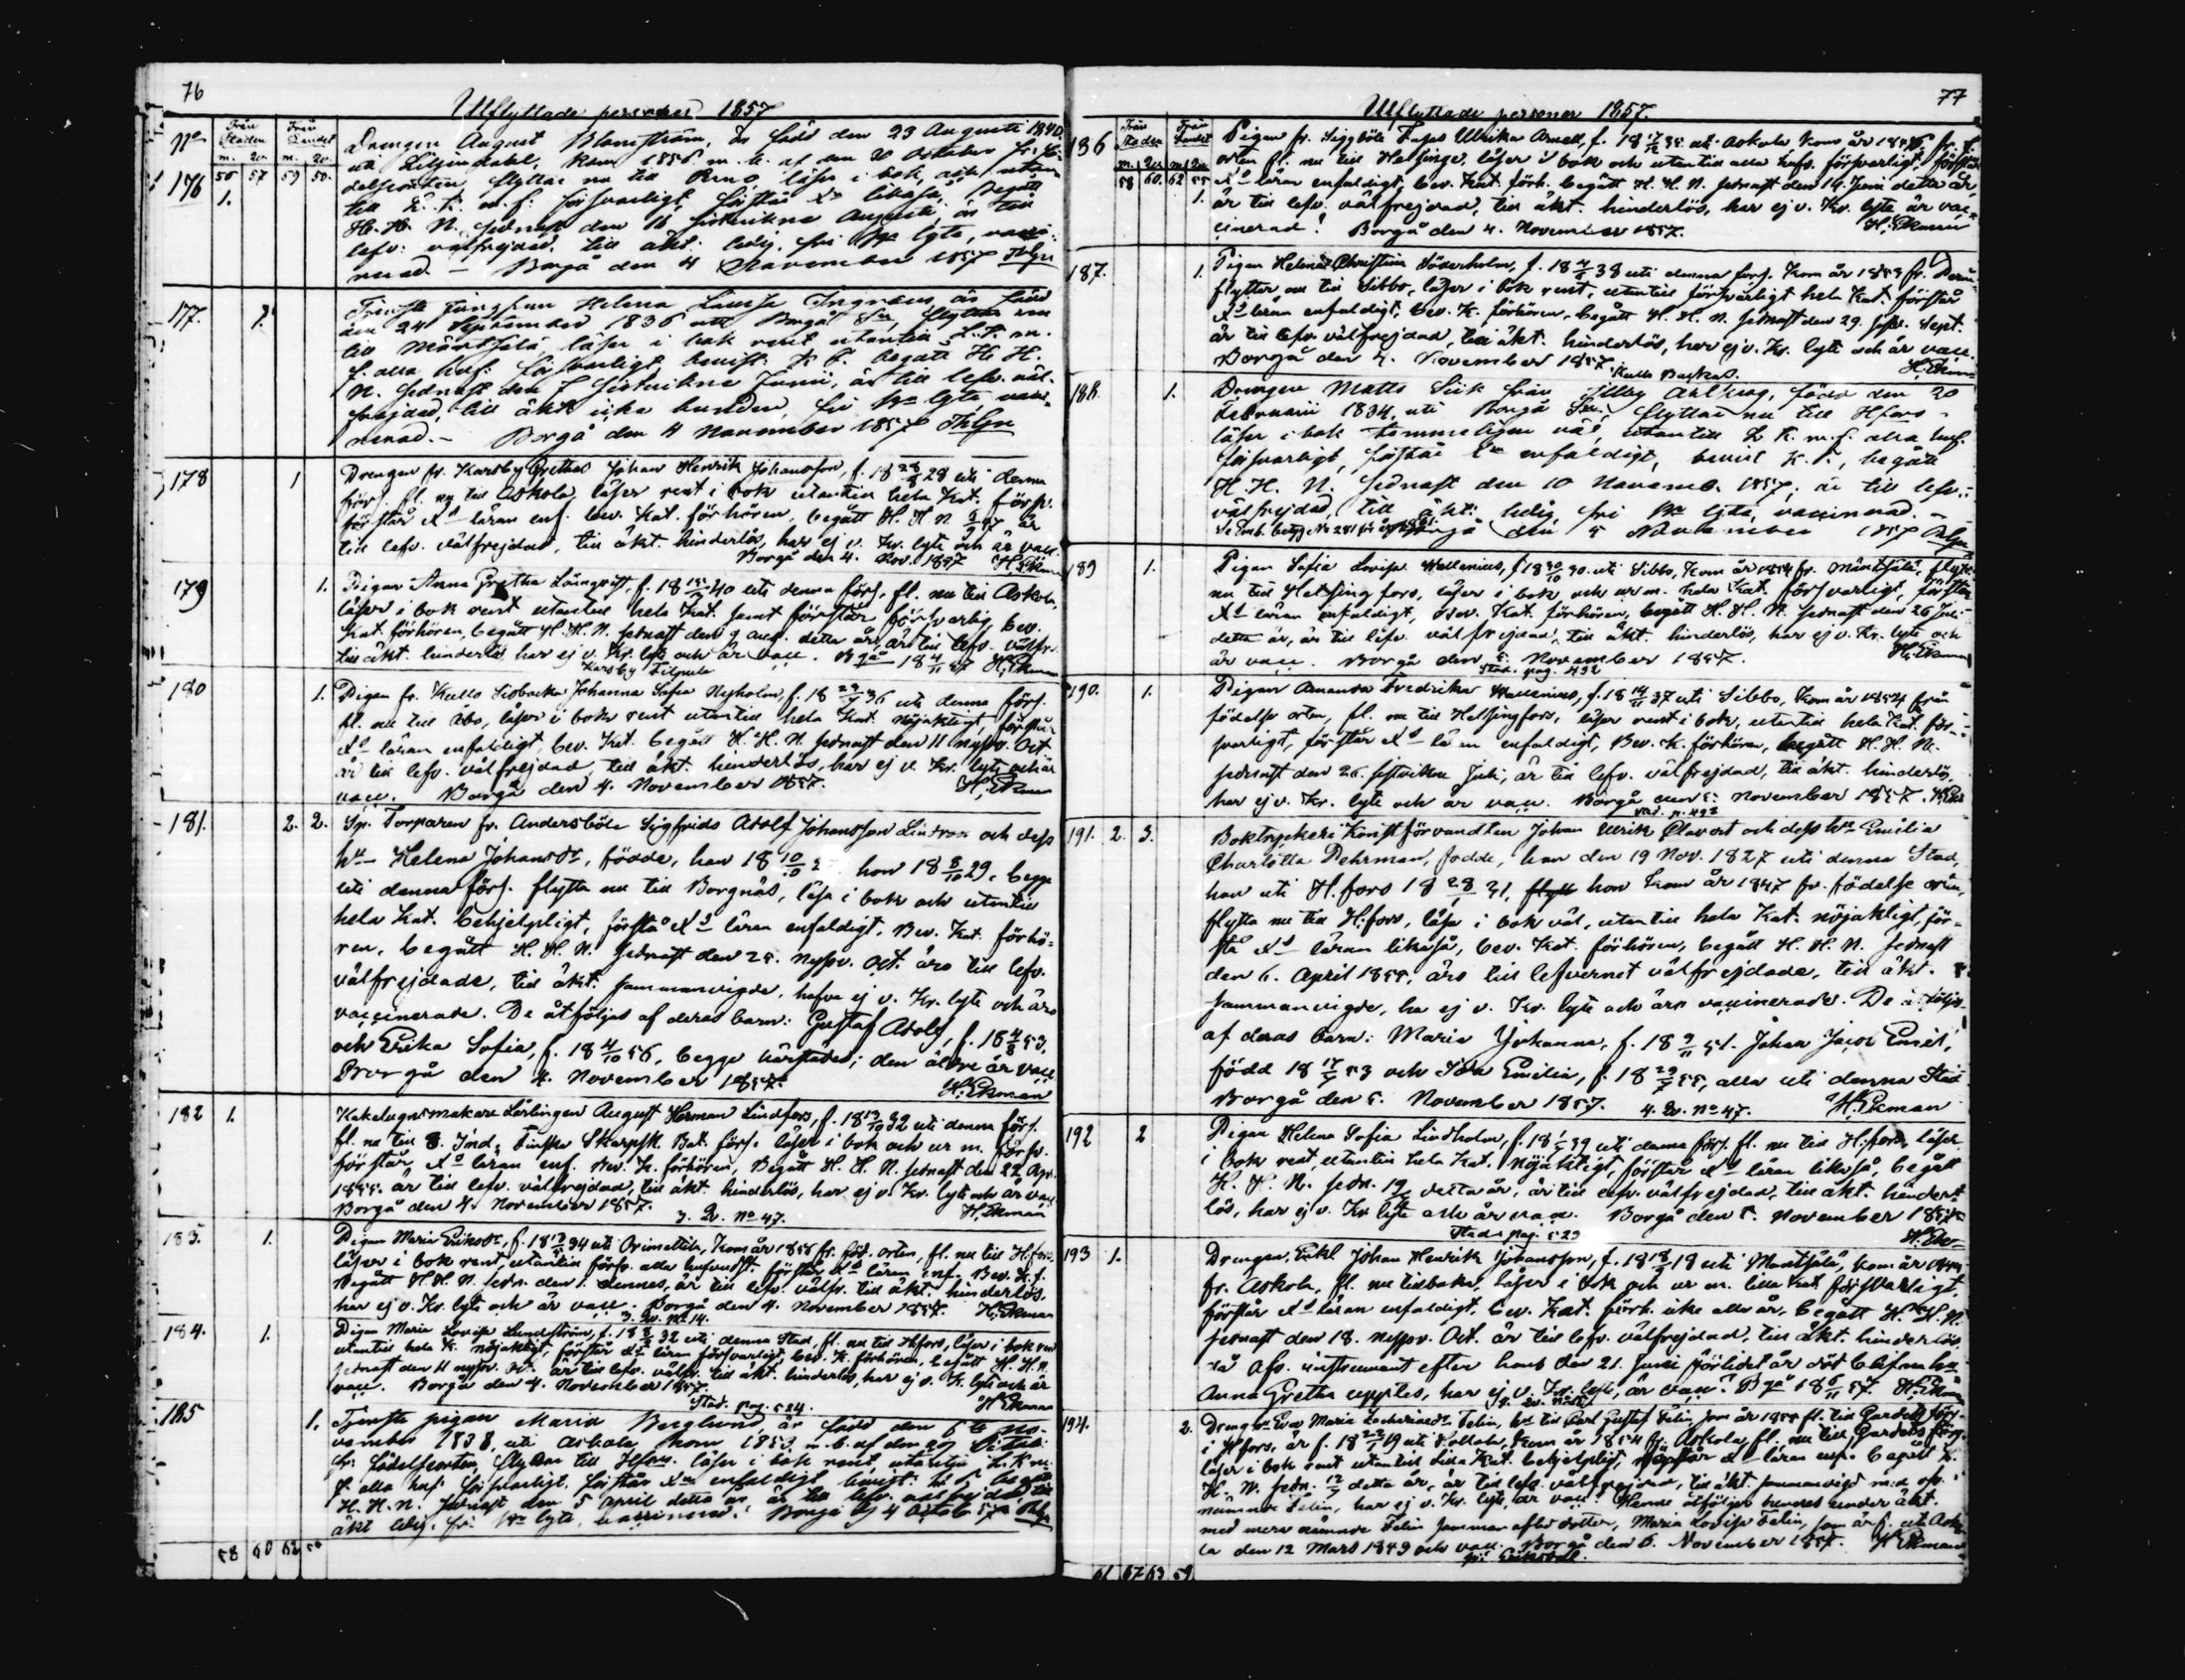 76
Utflyttade personer 1857
No Från Staden Från Landet
m. qv. m. qv.
56 57 59 50.
176 1. Drengen August Blomström, är född den 23 Augusti 1840
uti Liljendahl, kom 1856 m. b. af den 30 Oktober fr. fö-
delseorten, flyttar nu till Perno läser i bok, och utan
till L. K. m. f. försvarligt, förstår Xd likaså, begått
H. H. N. sednast den 16 sistvikne Augusti, är till
lefv: välfrejdad, till äkt: ledig, fri Vn lyte, vacci-
nerad. - Borgå den 4 November 1857
177. Tjenste jungfrun Helena Lovisa Ingnaus, är född
den 24 September 1836 uti Borgå Sn, flyttar nu
till Mäntsälä läser i bok rent utantill L. K. m.
f. alla huf: försvarligt, bevist K F. begått H. H.
N. sednast den 7 sistvikne Junii, är till lefv. väl-
frejdad, till äkt icke bunden, fri Vn lyte vacci-
nerad. - Borgå den 4 November 1857
178 1 Drengen fr. Karsby Grethas Johan Henrik Johansson, f. 18 28/8 28 uti denna
förs. fl. nu till Askola, läser rent i bok utantill hela Kat. försv.
förstår Xd läran enf. bev. Kat. förhören, begått H. H. N. är
till lefv. välfrejdad, till äkt. hinderlös, har ej v. Kr. lyte och är vacc.
Borgå den 4. Nov. 1857 H. Ekman
179 1. Pigan Anna Gretha Lönnqvist, f. 18 40 uti denna förs. fl. nu till Askola,
läser i bok rent utantill hela Kat. samt förstår försvarlig, bev.
Kat. förhören, begått H. H. N. sednast den 9 aug. detta år, är till lefv. välfr.
till äkt. hinderlös har ej v. Kr. lyte och är vacc. Bgå 18 4/11 57 H. Ekman
Karsby
180 1. Pigan fr. Kullo Johanna Sofia Nyholm, f. 18 36 uti denna förs.
fl. nu till Åbo, läser i bok rent utantill hela Kat. nöjaktigt, förstår
Xd läran enfaldigt, bev. Kat. begått H. H. N. sednast den 11 nyssv. Oct
är till lefv. välfrejdad, till äkt. hinderlös, har ej v. Kr. lyte och är
vacc. Borgå den 4. November 1857. H. Ekman
181. 2. 2. Sp. Torparen fr. Andersböle Sigfrids Adolf Johansson Lindroos och dess
hu Helena Johansdr, födde, han 18 10/10 hon 18 8/10 29, begge
uti denna förs. flytta nu till Borgnäs, läsa i bok och utantill
hela Kat. behjelpligt, förstå Xd läran enfaldigt, Bev. Kat. förhö-
ren, begått H. H. N. sednast den 25. nyssv. Oct. äro till lefv.
välfrejdade, till äkt. sammanvigde, hafva ej v. Kr. lyte och äro
vaccinerade. De åtföljas af deras barn: Gustaf Adolf, f. 18 4/8 53,
och Erika Sofia, f. 18 4/10 56, begge härstädes; den äldre är vacc.
Borgå den 4. November 1857. H. Ekman
182 1. Kakelugnsmakare Lärlingen August Herman Lindfors, f. 18 19/10 32 uti denna förs.
fl. nu till 8. Ind. Finska Skarpsk. Bat. förs. läser i bok och ur m. försv.
förstår Xd läran enf. Bev. K. förhören, Begått H. H. N. sednast den 22 Apr.
1855. är till lefv. välfrejdad, till äkt. hinderlös, har ej v. Kr. lyte och är vacc.
Borgå den 4. November 1857. H. Ekman
3. Qv. No 47.
183. 1. Pigan Maria Eriksdr, f. 18 34 uti Orimattila, kom år 1856 fr. föd. orten, fl. nu till H.fors.
läser i bok rent, utantill försv. alla hufvudst. förstår Xd läran enf. Bev. K. f.
Begått H. H. N. sedn. den 1. dennes, är till lefv. välfr. till äkt. hinderlös.
har ej v. Kr. lyte och är vacc. Borgå den 4. November 1857. H. Ekman
3. Qv. No 14.
184. 1. Pigan Maria Lovisa Lundström, f. 18 32 uti denna Stad, fl. nu till Hfors, läser i bok rent
utantill hela K. nöjaktigt, förstår Xd läran försvarligt, bev. K. förhören, begått H. H. N.
sednast den 4 nyssv. Oct. är till lefv. välfr. till äkt. hinderlös, har ej v. K. lyte och är
vacc. Borgå den 4. November 1857. H Ekman
Stad. pag. 524.
185 1. Tjenste pigan Maria Berglund, är född den 6te No-
vember 1838, uti Askola, kom 1853, m. b. af den 29
fr: födelseorten, flyttar till Hfors. läser i bok rent, utantill L. K. m.
f. alla huf: försvarligt, förstår Xn enfaldigt, bevist: K F. begått
H. H. N. sednast den 5 April detta år, är till lefv. välfrejdad, till
äkt ledig, fri Vn lyte, vaccinerad. Borgå d 4 57
58 60 62 50
77
Utflyttade personer 1857.
Från Staden Från Landet
m. qv. m. qv.
58 60. 62 55
186 1. Pigan fr. Siggböle Tapas Ulrika Arnell, f. 18 35 uti Askola, kom år 1856, fr. f.
orten fl. nu till Helsinge, läser i bok och utantill alla hufs. försvarligt, förstår
Xd läran enfaldigt, bev. Kat. förh. begått H. H. N. sednast den 14. Juni detta år,
är till lefv. välfrejdad, till äkt. hinderlös, har ej v. Kr. lyte är vac-
cinerad! Borgå den 4. November 1857. H. Ekman
187. 1. Pigan Helena Christina Söderholm, f. 18 38 uti denna förs. Kom år 1853 fr. Perno
flyttar nu till Sibbo, läser i bok rent, utantill försvarligt hela Kat. förstår
Xd läran enfaldigt, bev. K. förhören, begått H. H. N. sednast den 29. sistv. Sept.
är till lefv. välfrejdad, till äkt. hinderlös, har ej v. Kr. lyte och är vacc.
Borgå den 4. November 1857. H. Ekman
Kullo Backas.
188. 1. Drengen Matts Siik från födder den 20
Februarii 1834, uti Borgå Sn, flyttar nu till Hfors -
läser i bok temmeligen väl, utantill L. K. m. f. alla huf.
försvarligt, förstår Xn enfaldigt, bevist K. F., begått
H. H. N. sednast den 10 1857, är till lefv:
välfrejdad, till äkt: ledig fri Vn lyte, vaccinerad. -
Borgå den 5 November 1857
189 1. Pigan Sofia Lovisa Wallenius, f. 18 30/10 30 uti Sibbo, kom år 1854 fr. Mäntsälä, flytt.
nu till Helsingfors, läser i bok och ur m. hela Kat. försvarligt, förstår
Xd läran enfaldigt, bev. Kat. förhören, begått H. H. N. sednast den 26 Juli
detta år, är till lefv. välfrejdad, till äkt. hinderlös, har ej v. Kr. lyte och
är vacc. Borgå den 5. November 1857. H. Ekman
Stad. pag. 492
190. 1. Pigan Amanda Fredrika Wallenius, f. 18 14/11 37 uti Sibbo, kom år 1854 från
födelse orten, fl. nu till Helsingfors, läser rent i bok, utantill hela Kat. för-
svarligt, förstår Xd läran enfaldigt, Bev. K. förhören, begått H. H. N.
sednast den 26. sistvikne Juli, är till lefv. välfrejdad, till äkt. hinderlös,
har ej v. Kr. lyte och är vacc. Borgå den 5. November 1857.
Stad. p. 492
191. 2. 3. Boktryckeri Konstförvandten Johan Ulrik Clavort och dess hu Emilia
Charlotta Dehrman, födde, han den 19 Nov. 1827 uti denna Stad,
hon uti H.fors 18 28/1 31, hon kom år 1847 fr. födelse orten,
flytta nu till H.fors, läsa i bok väl, utantill hela Kat. nöjaktigt, för-
stå Xd läran likaså, bev. Kat. förhören, begått H. H. N. sednast
den 6. April 1855, äro till lefvernet välfrejdade, till äkt.
sammanvigde, ha ej v. Kr. lyte och äro vaccinerade. De åtföljas
af deras barn: Maria Johanna, f. 18 9/11 51. Johan Jacob Emil,
född 18 53 och Ida Emilia, f. 18 55, alla uti denna Stad
Borgå den 5. November 1857. H. Ekman
4. Qv. No 47.
192 2 Pigan Helena Sofia Lindholm, f. 18 39 uti denna förs. fl. nu till H.fors, läser
i bok rent, utantill hela Kat. nöjaktigt, förstår Xd läran likaså, begått
H. H. N. sedn. detta år, är till lefv. välfrejdad, till äkt. hinder-
lös, har ej v. Kr lyte och är vacc. Borgå den 5. November 1857
Stads pag. 529 H. Ekman
193 1. Drengen, Enkl. Johan Henrik Johansson, f. 18 18/9 18 uti Mäntsälä, kom år
fr. Askola, fl. nu tillbaka, läser i bok och ur m. lilla Kat försvarligt,
förstår Xd läran enfaldigt, bev. Kat. förh. icke alla år, begått H. H. N.
sednast den 18. nyssv. Oct. är till lefv. välfrejdad, till äkt. hinderlös
då afv. instrument efter hans den 21. Juni förlidet år död blifna hu
Anna Gretha upptes, har ej v. Kr. lyte, är vacc! Bgå 18 6/11 57. H. Ekman
194. 2. Dreng hu Eva Maria Zachariaedr Felin, hu till Carl Gustaf Felin, som år 1855 fl. till Gardets förs.
i Hfors, är f. 18 19 uti kom år 1854 fr. Askola, fl. nu till Gardets förs.
läser i bok rent utantill lilla Kat. behjelpligt, förstår Xd läran enf. begått H.
H. N. sedn. detta år, är till lefv. välfrejdad, till äkt. sammanvigd med ofv.
nämnde Felin, har ej v. Kr. lyte, är vacc! Henne åtföljer hennes under äkt.
med mera nämnde Felin sammanaflade dotter, Maria Lovisa Felin, som är f. uti Asko-
la den 12 Mars 1849 och vacc. Borgå den 6. November 1857. H Ekman
61 67 63 59